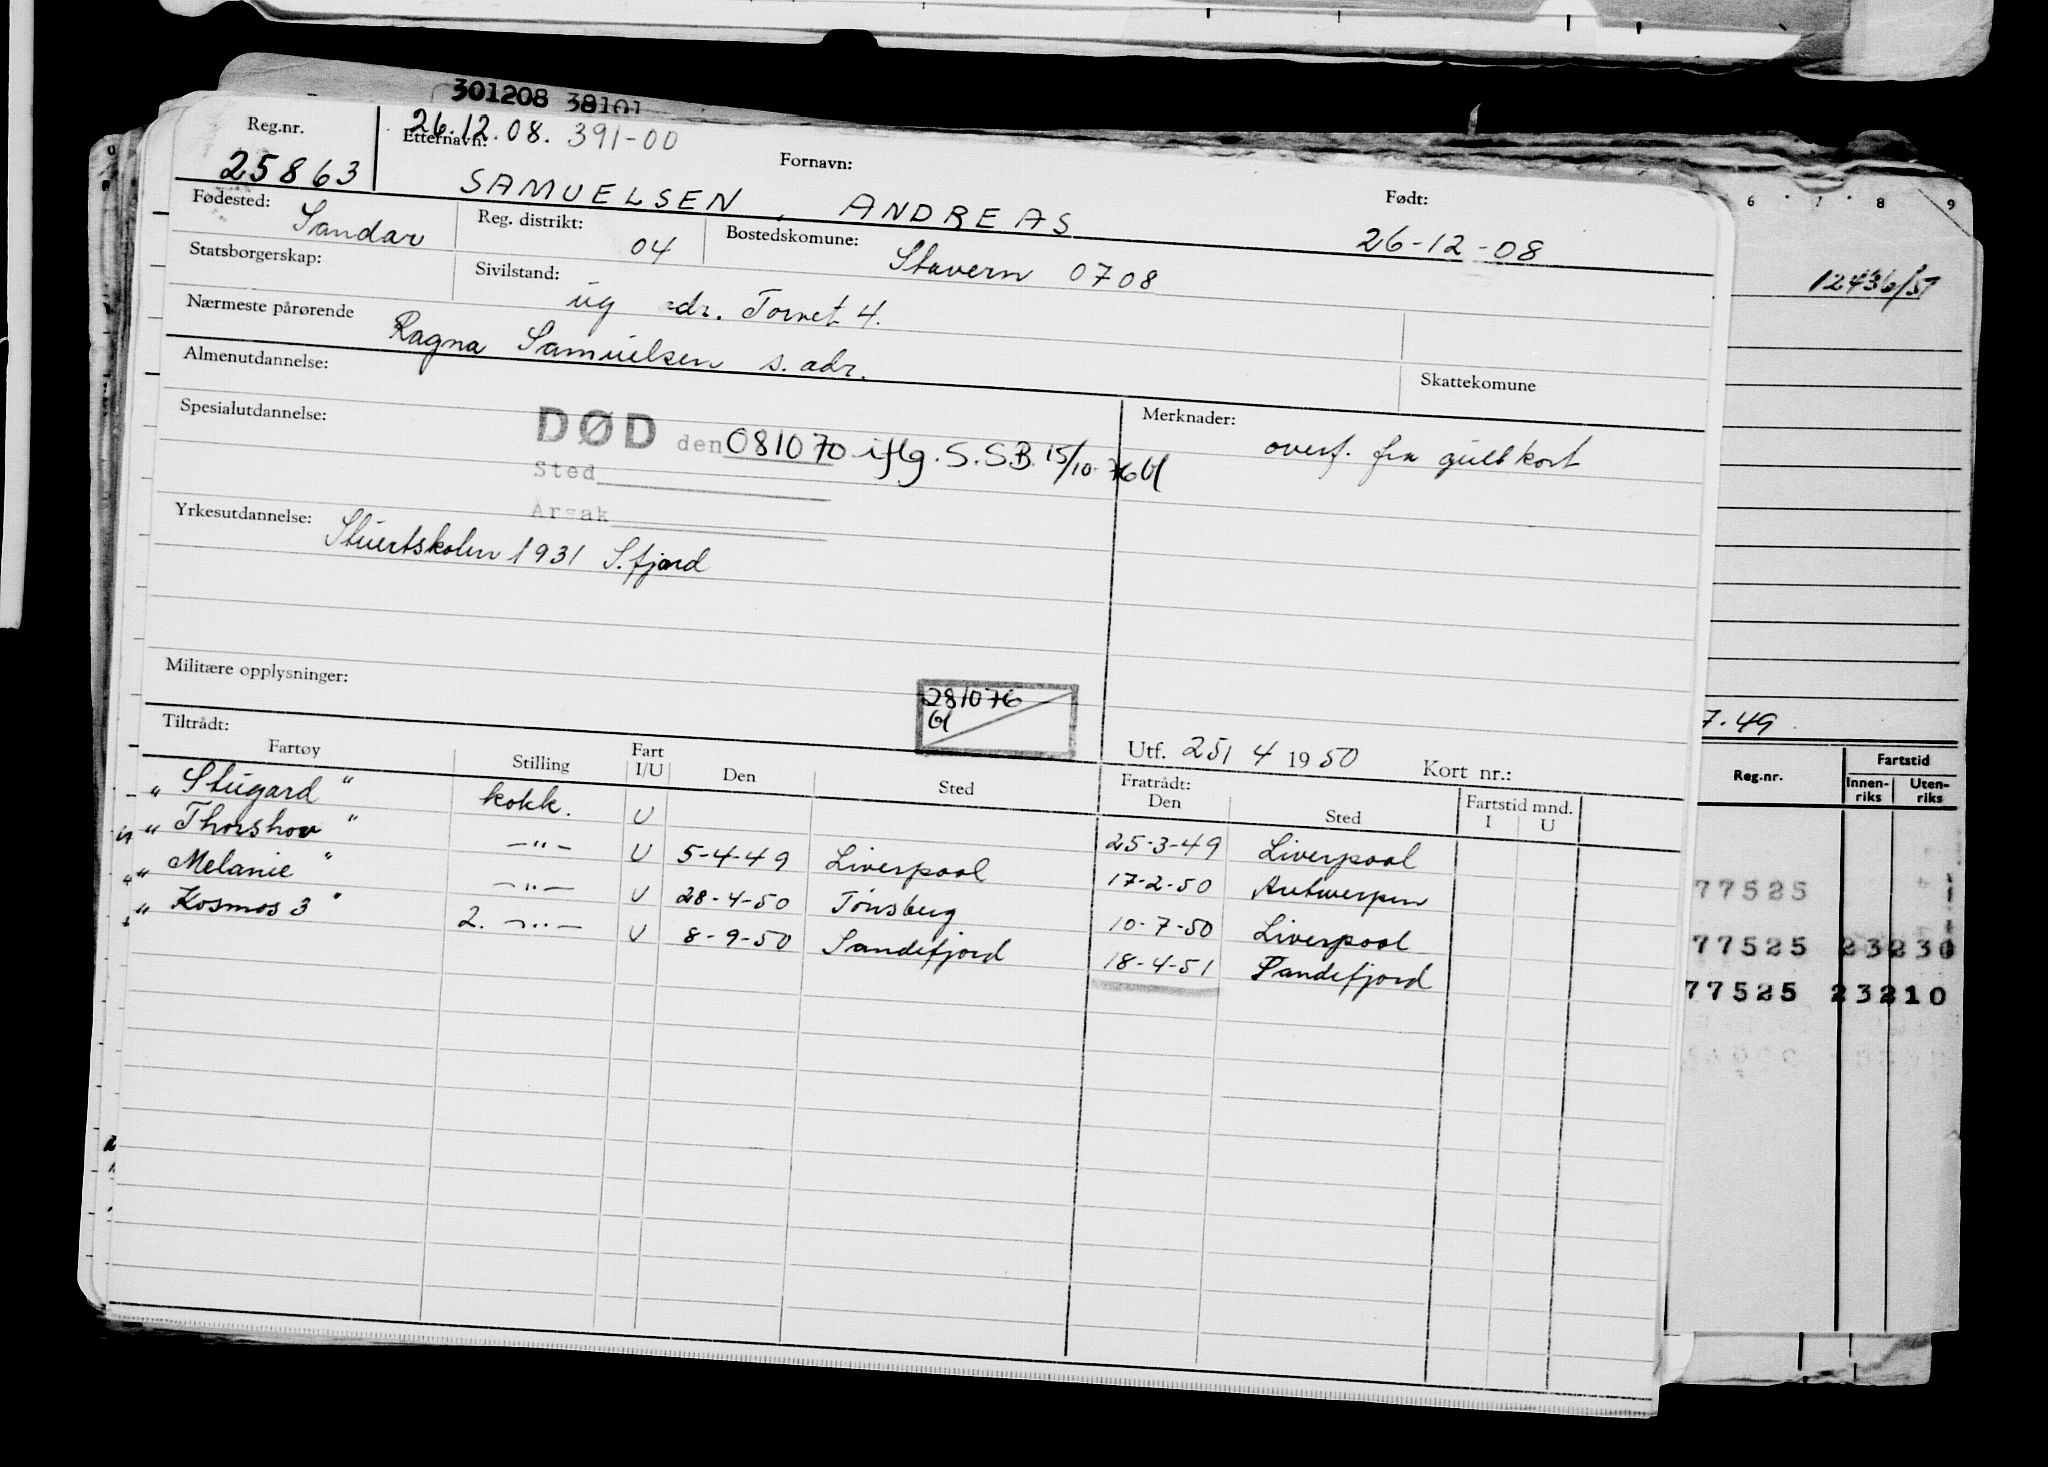 301208 38101
Reg.nr.
25863
26.12.08. 391-00
Etternavn:
SAMUELSEN,
Fornavn:
ANDREAS
Født:
26-12-08
Fødested:
Sandar
Reg. distrikt:
04
Bostedskomune:
Stavern 0708
Statsborgerskap:
Sivilstand:
ug adr. Torvet 4.
Nærmeste pårørende
Ragna Samuelsen s. adr.
Almenutdannelse:
Skattekomune
Spesialutdannelse:
DØD den 081070 iflg. S.S.B. 15/10-76
Sted
Årsak
Merknader:
overf. fra gult kort
Yrkesutdannelse:
Stuertskolen 1931 S.fjord
Militære opplysninger:
281076
Utf. 25/ 4 1950 Kort nr.:
Tiltrådt:
Fartøy Stilling Fart I/U Den Sted
Fratrådt:
Den Sted Fartstid mnd. I U
"Stugard" kokk. U 25-3-49 Liverpool
"Thorshov" —"— U 5-4-49 Liverpool 17-2-50 Antwerpen
"Melanie" —"— U 28-4-50 Tønsberg 10-7-50 Liverpool
"Kosmos 3" 2. —"— U 8-9-50 Sandefjord 18-4-51 Sandefjord
6 7 8 9
12436/51
7.49
Reg.nr.
Fartstid
Innen-riks Uten-riks
77525
77525 23230
77525 23210